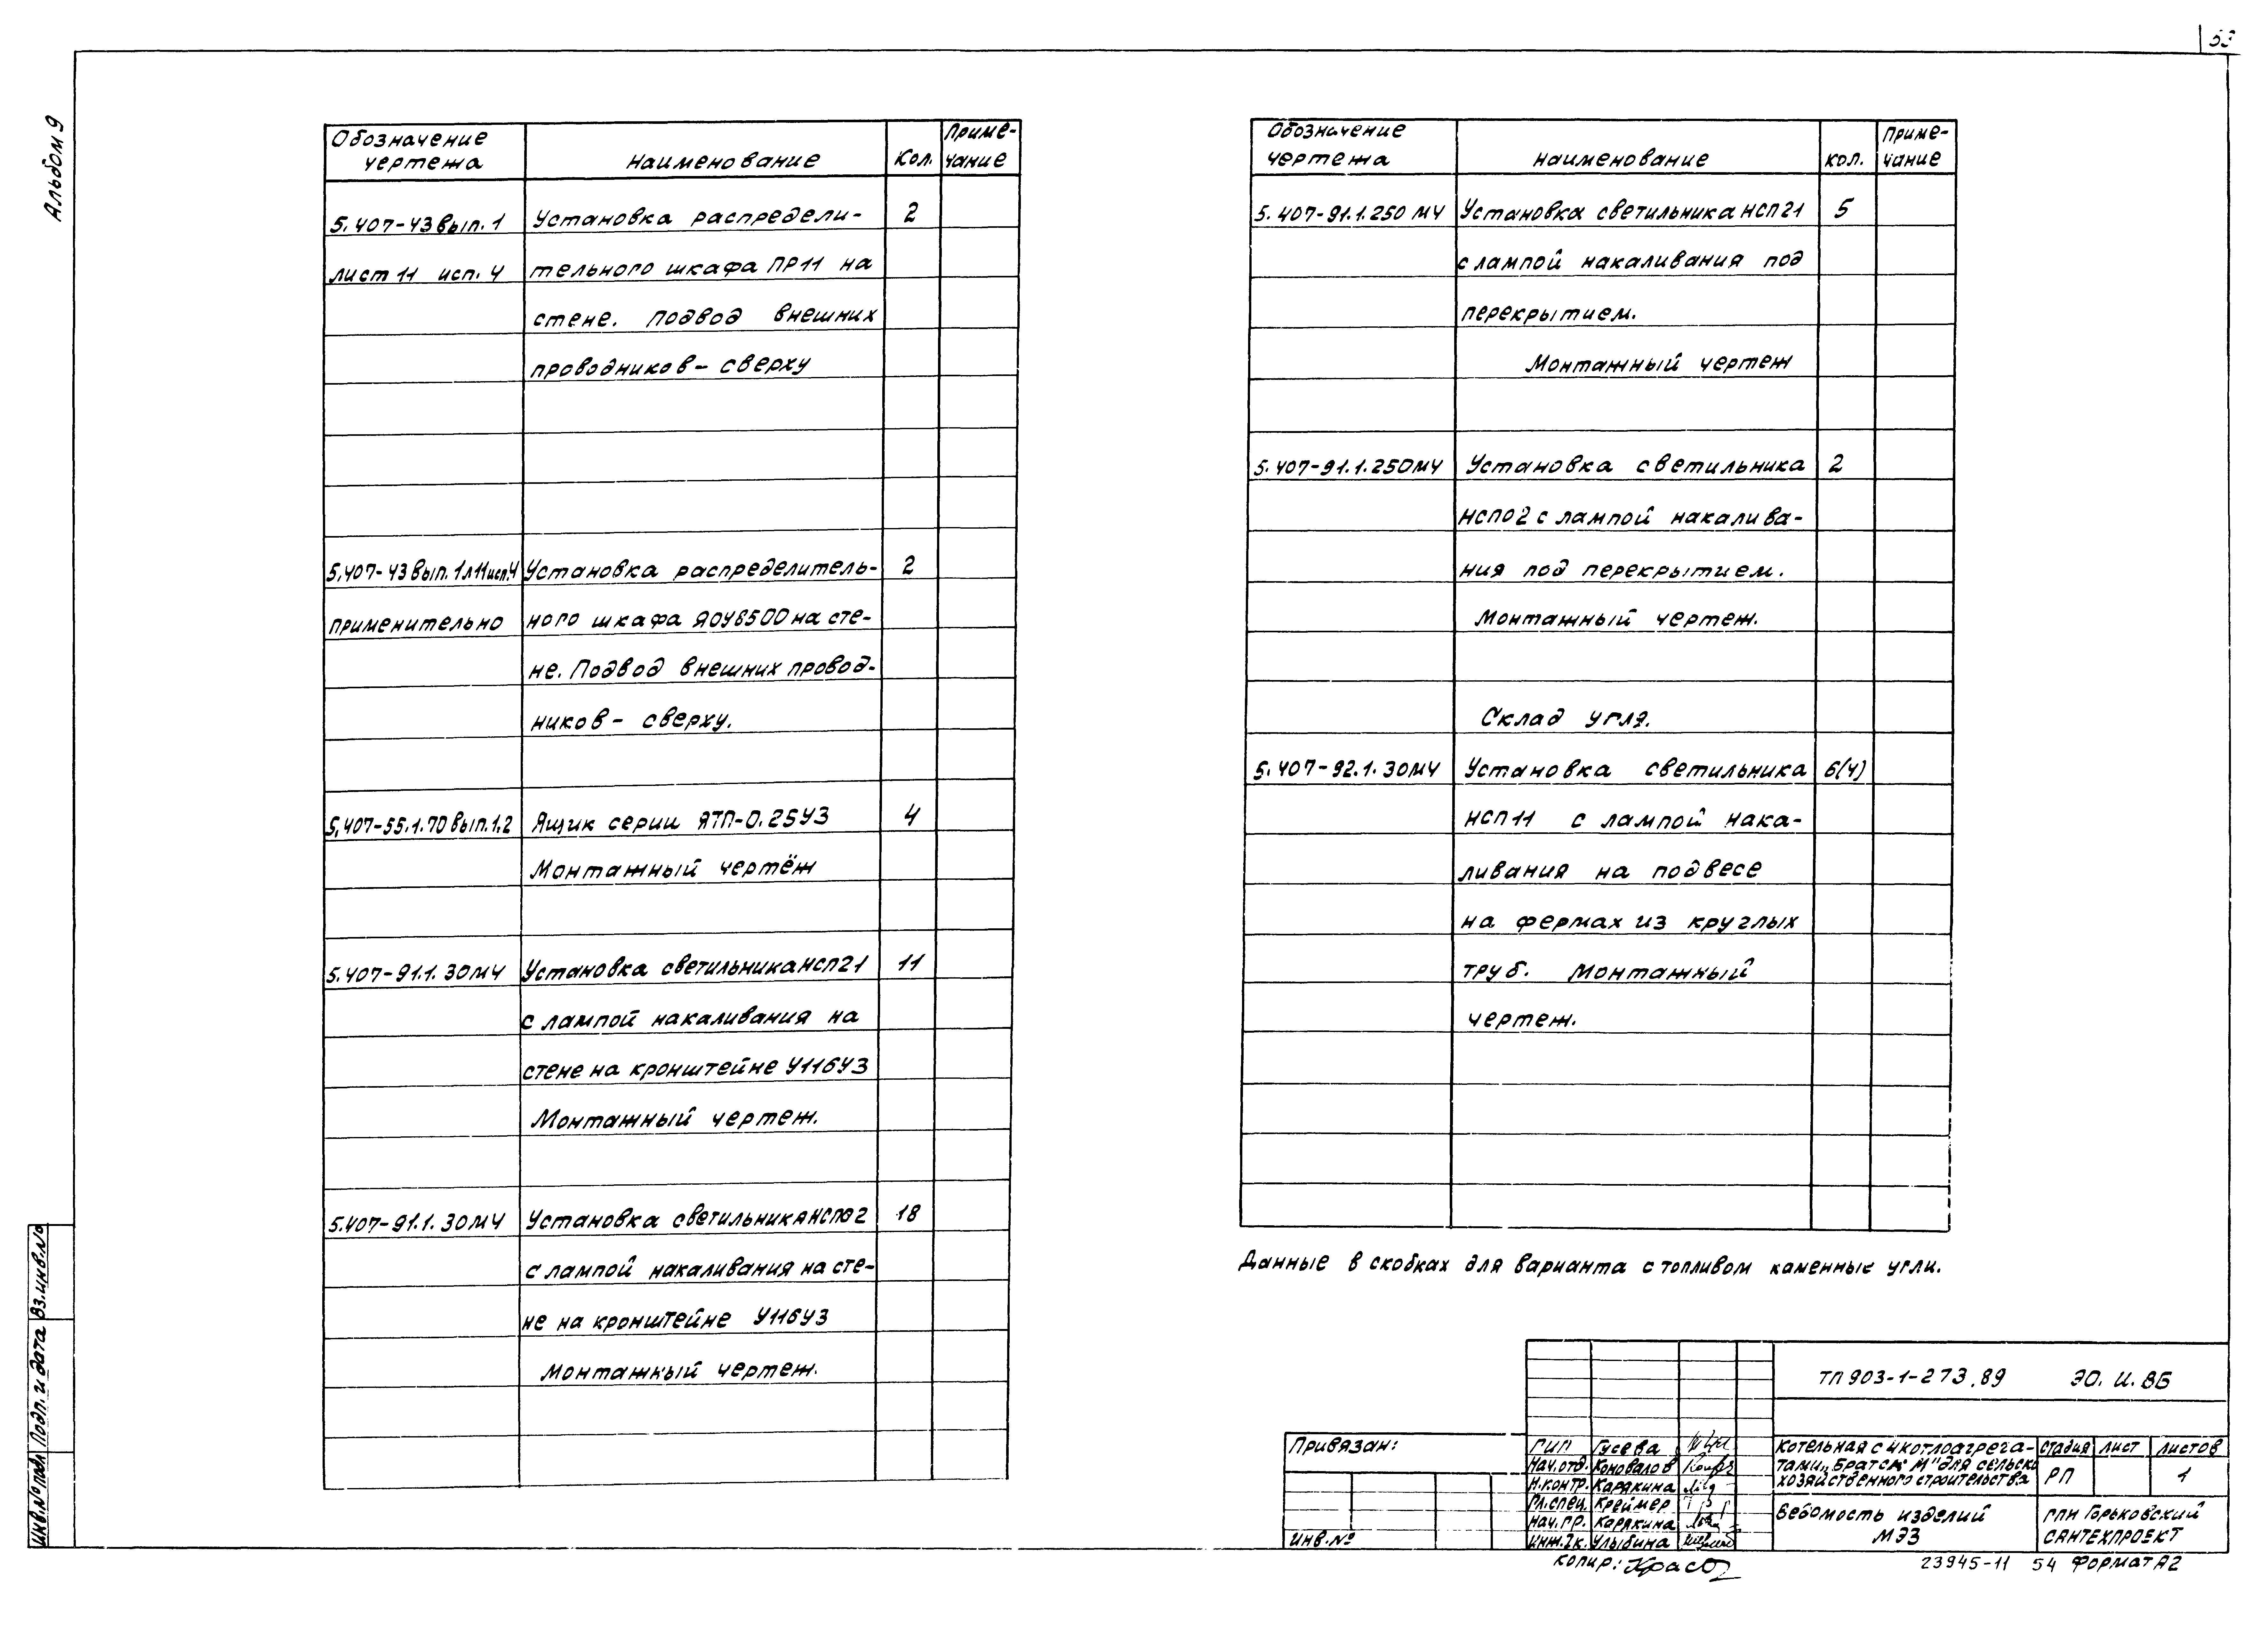 53
Альбом 9
Обозначение чертежа
Наименование
Кол.
Примечание
5.407-43 вып. 1
Установка распредели-
2
лист 11 исп. 4
тельного шкафа ПР11 на
стене. Подвод внешних
проводников - сверху
5.407-43 вып. 1 л 11 исп. 4
Установка распределитель-
2
применительно
ного шкафа ЯОУ8500 на сте-
не. Подвод внешних провод-
ников - сверху.
5.407-55.1.70 вып. 1.2
Ящик серии ЯТП-0.25У3
4
Монтажный чертёж
5.407-91.1.30МЧ
Установка светильника НСП21
11
с лампой накаливания на
стене на кронштейне У116У3
Монтажный чертеж.
5.407-91.1.30МЧ
Установка светильника НСП02
18
с лампой накаливания на сте-
не на кронштейне У116У3
Монтажный чертеж.
Обозначение чертежа
Наименование
кол.
Примечание
5.407-91.1.250 МЧ
Установка светильника НСП21
5
с лампой накаливания под
перекрытием.
Монтажный чертеж
5.407-91.1.250МЧ
Установка светильника
2
НСП02 с лампой накалива-
ния под перекрытием.
Монтажный чертеж.
Склад угля.
5.407-92.1.30МЧ
Установка светильника
6(4)
НСП11 с лампой нака-
ливания на подвесе
на фермах из круглых
труб. Монтажный
чертеж.
Данные в скобках для варианта с топливом каменные угли.
ТП 903-1-273.89 ЭО.И.ВБ
Привязан:
Инв.№
ГИП Гусева
Нач.отд. Коновалов
Н.контр. Карякина
Гл.спец. Креймер
Нач.гр. Карякина
Инж.2к. Улыбина
Котельная с 4 котлоагрега-
тами „Братск М" для сельско
хозяйственного строительства
стадия лист листов
РП 1
Ведомость изделий
МЭЗ
ГПИ Горьковский
САНТЕХПРОЕКТ
копир:
23945-11 54 Формат А2
Инв.№ подл Подп. и дата Вз.инв.№